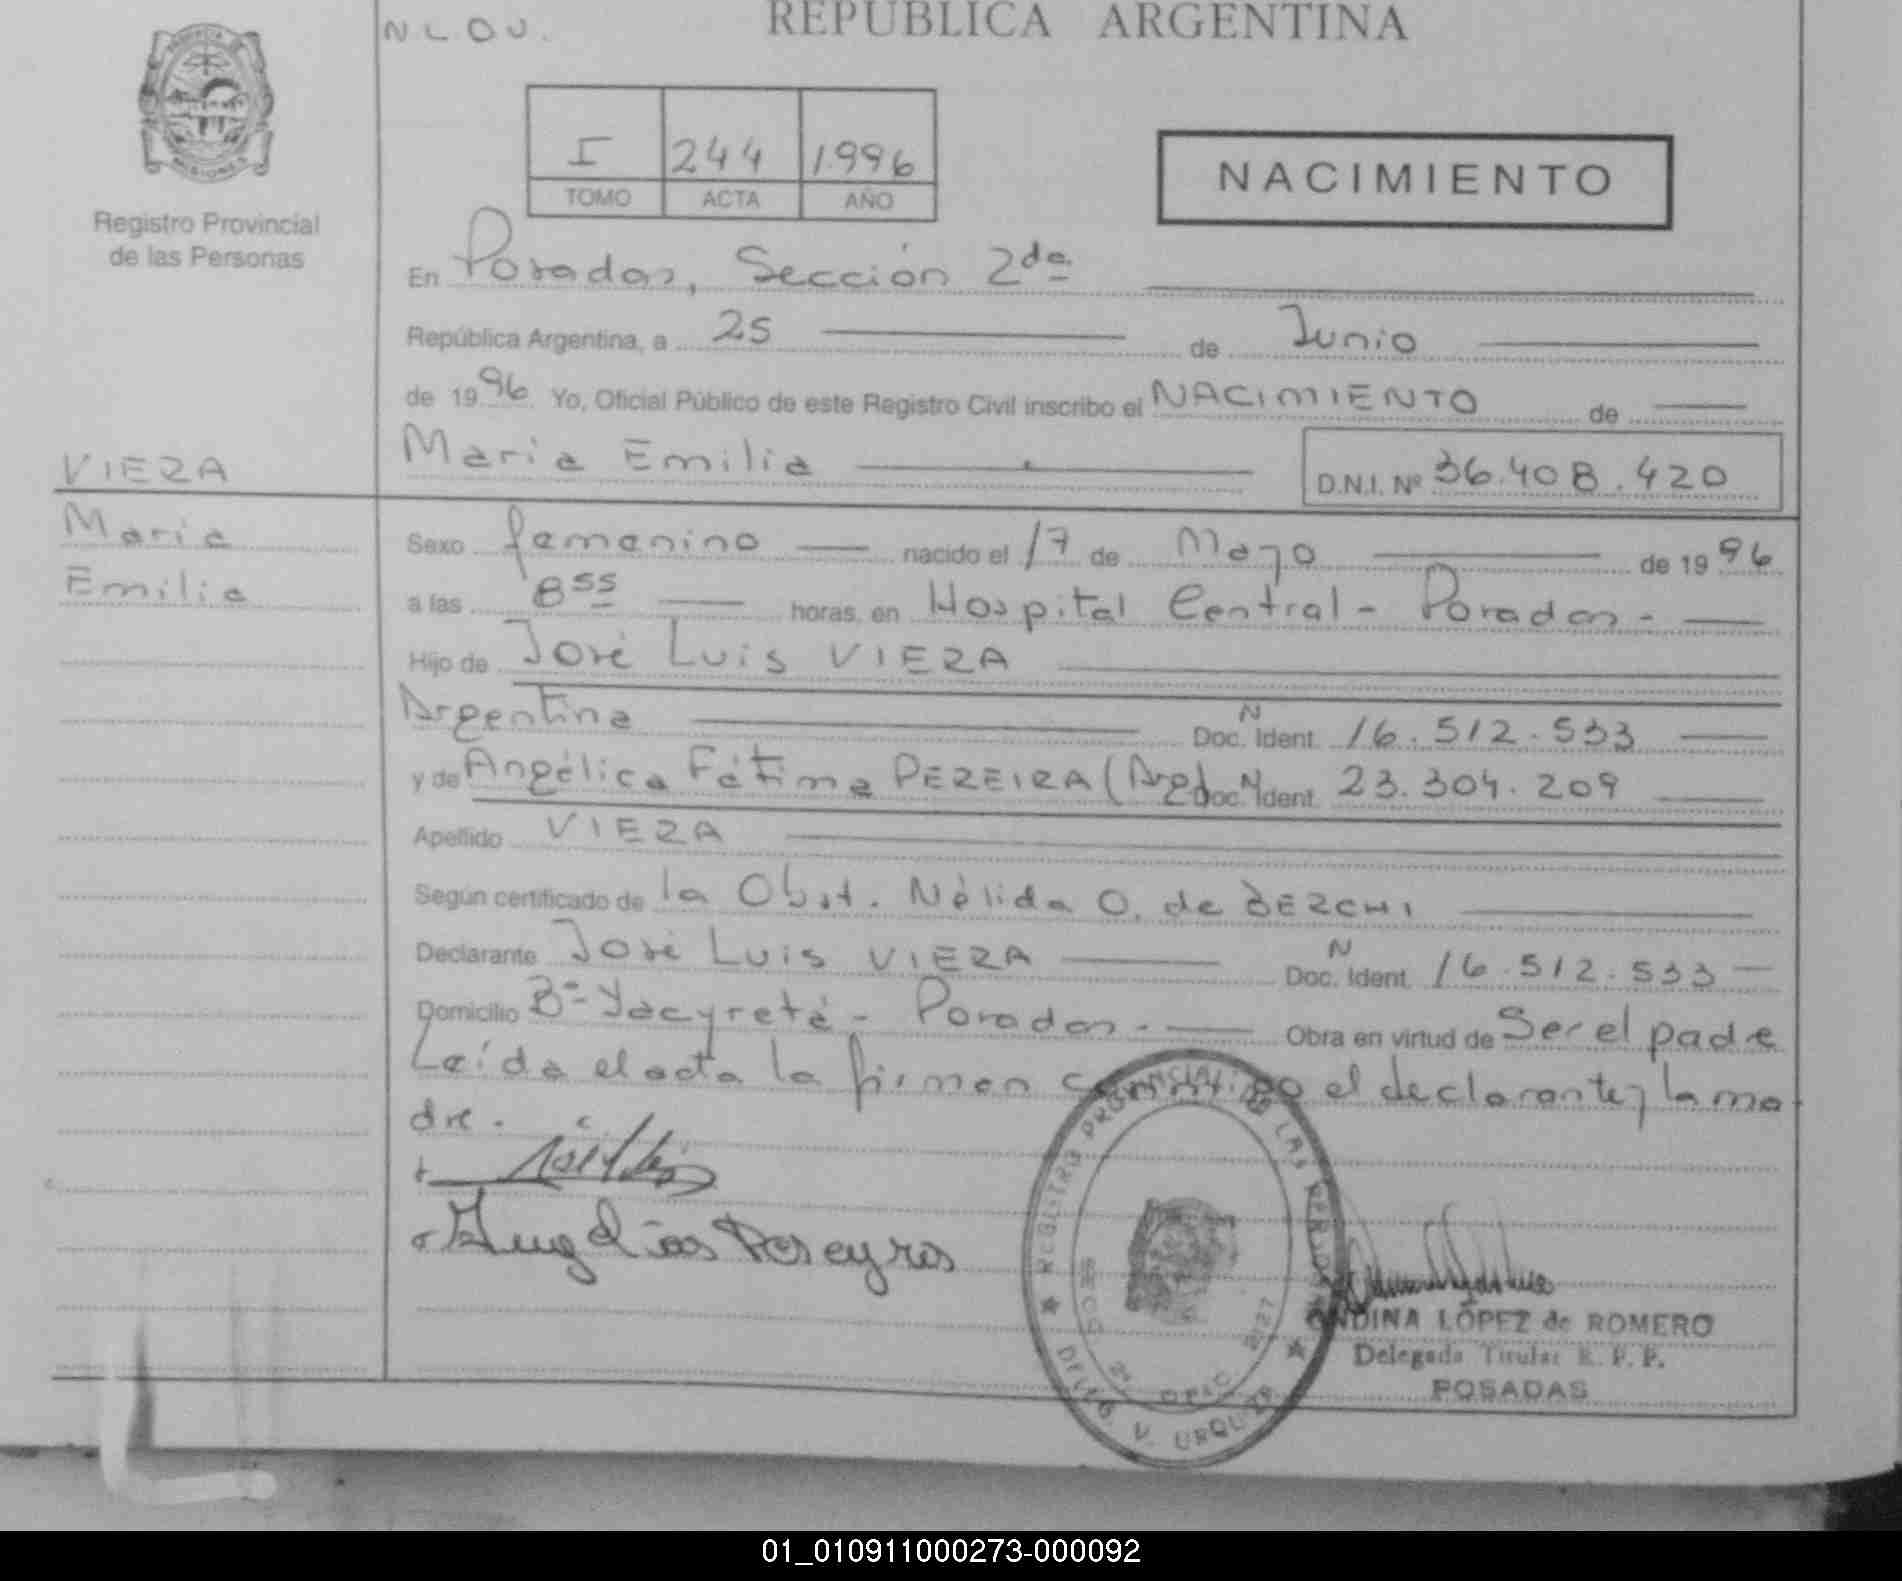 N L O V.
REPUBLICA ARGENTINA
PROVINCIA
MISIONES
Registro Provincial
de las Personas
I 244 1996
TOMO ACTA AÑO
NACIMIENTO
En Posadas, Sección 2da
República Argentina, a 25 de Junio
de 1996 Yo, Oficial Público de este Registro Civil inscribo el NACIMIENTO de
VIERA
María Emilia D.N.I. Nº 36.408.420
María
Emilia
Sexo femenino nacido el 17 de Mayo de 1996
a las 8 55 horas, en Hospital Central - Posadas -
Hijo de José Luis VIERA
Argentina N Doc. Ident. 16.512.533
y de Angélica Fátima PEREIRA (Arg) Doc. N Ident. 23.304.209
Apellido VIERA
Según certificado de la Obst. Nélida O. de BERCHI
Declarante José Luis VIERA N Doc. Ident. 16.512.533
Domicilio Bº Yacyretá - Posadas - Obra en virtud de Ser el padre
Leída el acta la firman conmigo el declarante y la ma
dre.
REGISTRO PROVINCIAL DE LAS PERSONAS
SECC. 2ª OFIC. 2127
DELEG. V. URQUIZA
ONDINA LÓPEZ de ROMERO
Delegada Titular R. P. P.
POSADAS
01_010911000273-000092